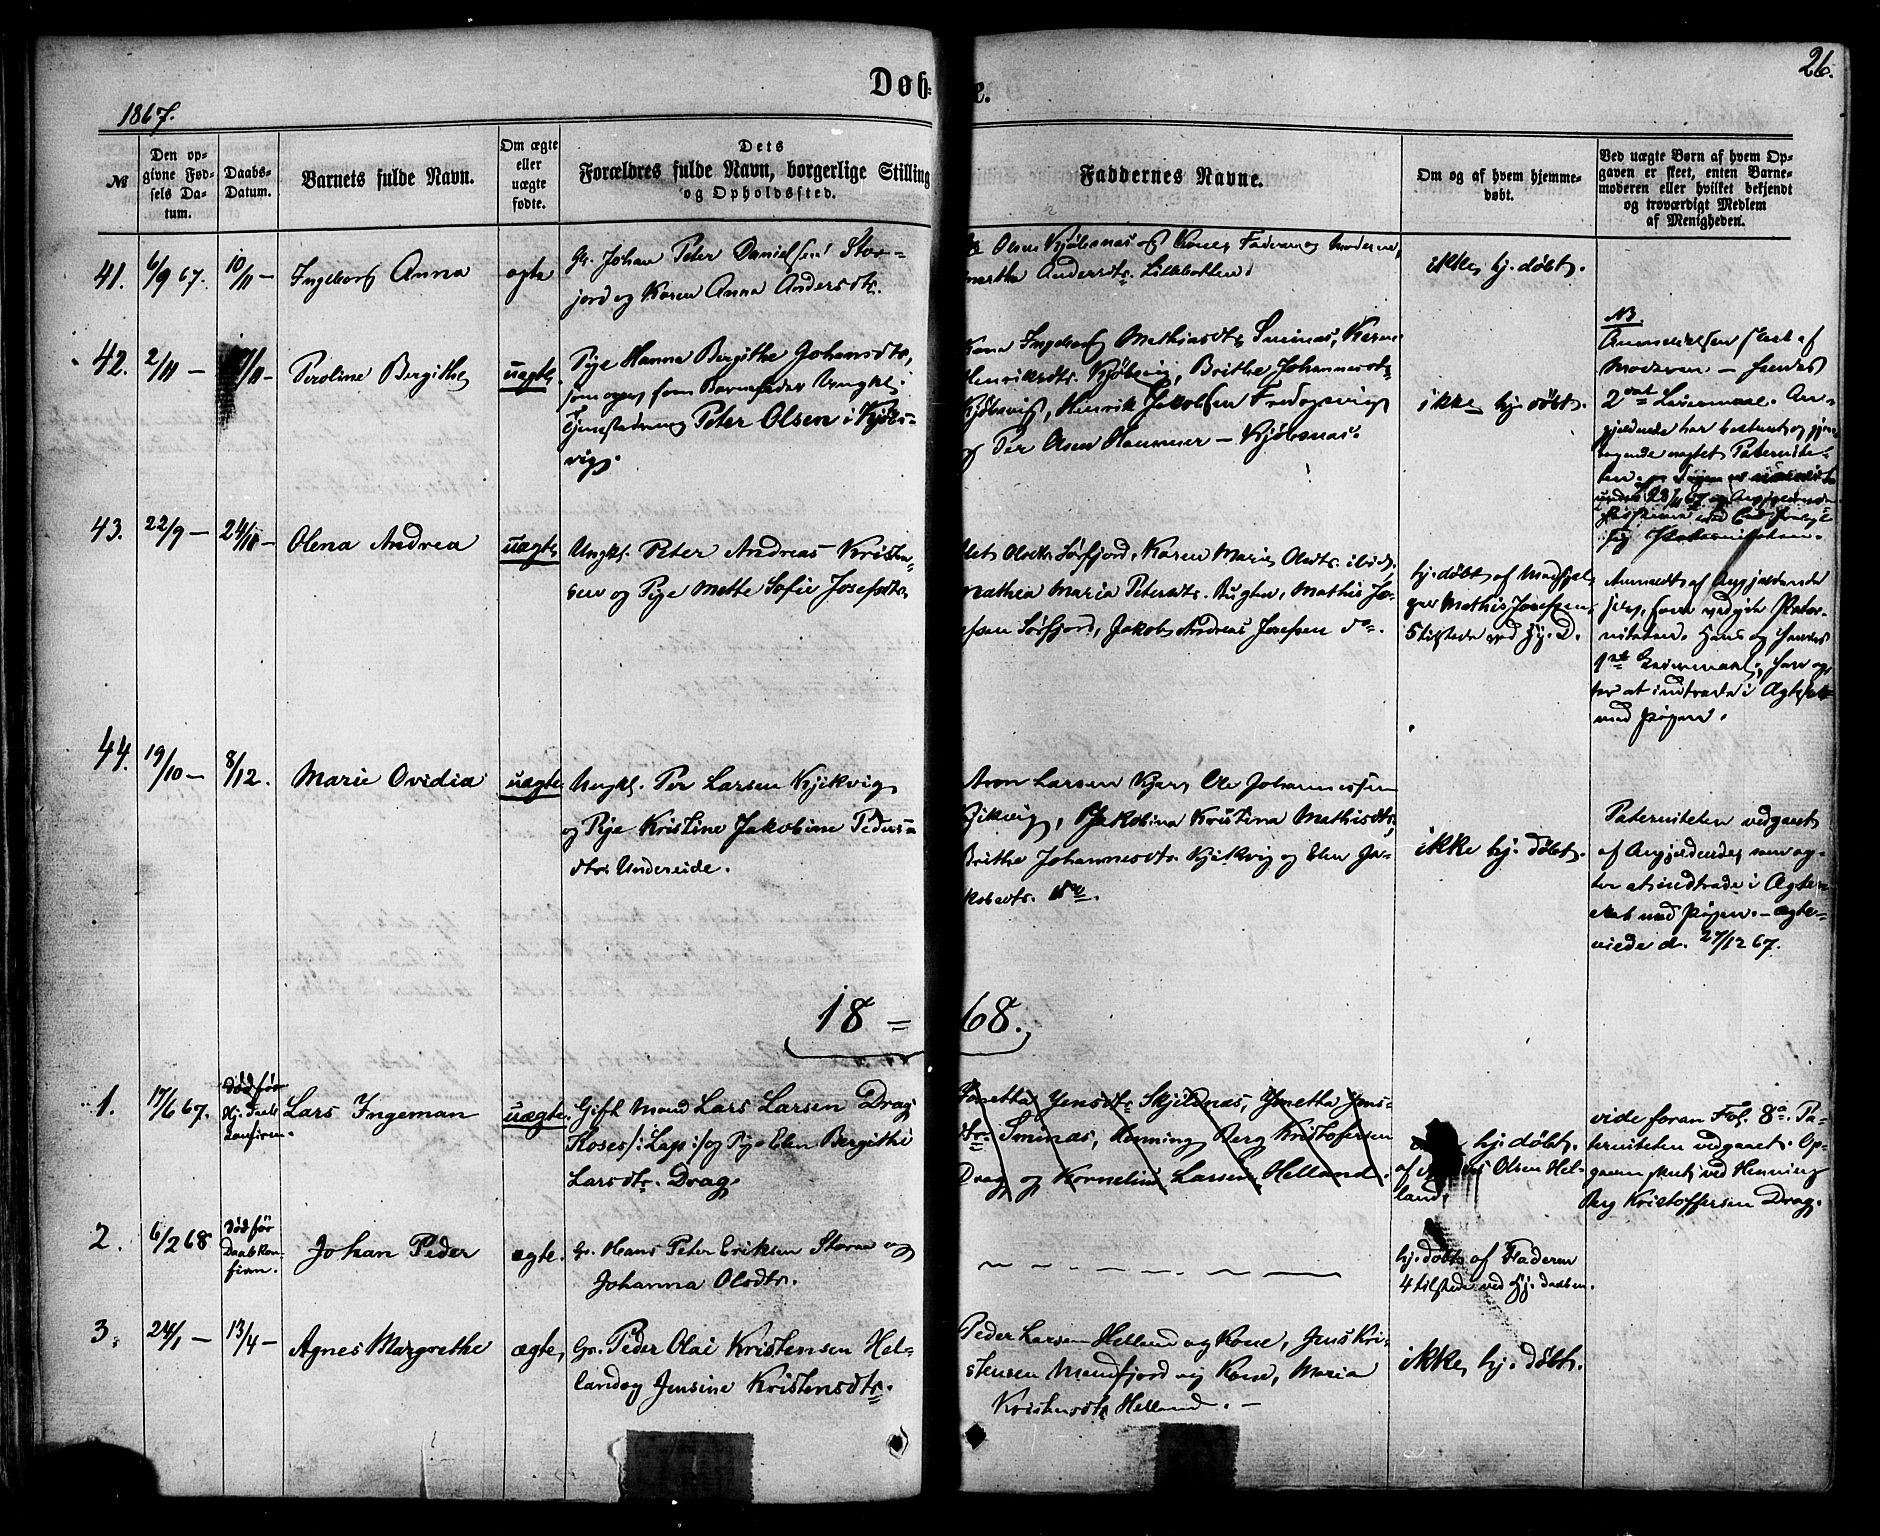 26.
Døbte.
1867.
№
Den opgivne Fødsels Datum.
Daabs-Datum.
Barnets fulde Navn.
Om ægte eller uægte fødte.
Dets Forældres fulde Navn, borgerlige Stilling og Opholdssted.
Faddernes Navne.
Om og af hvem hjemmedøbt.
Ved uægte Børn af hvem Opgaven er skeet, enten Barnemoderen eller hvilket bekjendt og troværdigt Medlem af Menigheden.
41. 6/9 67. 10/11 – Ingeborg Anna ægte
Gr. Johan Peter Danielsen Stor=
jord og Karen Anna Andersdtr.
Olsen Kjøbsnas og Kone, Faderen og Moderen,
Martha Andersdtr. Lillebotten
ikke hj. døbt.
42. 2/11 – 17/11 – Peroline Bergithe uægte
Pige Hanna Bergithe Johansdtr,
som opgav som Barnefader Ungkl.
Peter Olsen i Kjøbs=
vig.
Kone Ingeborg Mathiasdtr Sminas, Karen
Henriksdtr. Kjøbsvig, Brithe Johannesdtr
Kjøbsvig, Henrik Jakobsen Fredagsvig
og Per Olsen Hammer – Kjøbsnas.
ikke hj. døbt.
NB.
Anmeldelsen skeet af
Moderen – hendes
2det Leiermaal. An=
gjeldende har bestemt og gjen=
tagende nægtet Paternite=
ten
43. 22/9 – 24/11 – Olena Andrea uægte
Ungkl. Peter Andreas Kristen=
sen og Pige Mette Sofie Josefsdtr.
Olsdtr Sørfjord, Karen Marie Olsdtr. ibid,
Mathea Maria Petersdtr. Bugten, Mathis Jo=
sefsen Sørfjord, Jakob Andreas Josefsen do.
hj. døbt af
Mathis Josefsen.
5 tilstede ved Hj. D.
Anmeldt af Angjældende
selv, som vedgik Pater=
niteten. Hans og hendes
1ste Leiermaal, han ag=
ter at indtræde i Ægtesk.
med Pigen.
44. 19/10 – 8/12. Marie Ovidia uægte
Ungkl. Per Larsen Kjikvig
og Pige Kristine Jakobine Peders=
dtr. Undereide.
Aron Larsen Kjar, Ole Johannessen
Kjikvig, Jakobina Kristina Mathisdtr,
Brithe Johannesdtr. Kjikvig og Elen Ja=
kobsdtr. do.
ikke hj. døbt.
Paterniteten vedgaaet
af Angjeldende, som ag=
ter at indtræde i Ægte=
skab med Pigen. – Ægte=
viede d. 27/12 67.
18 = 68.
1. 17/6 67. Død før
Lars Ingeman uægte.
Gift Mand Lars Larsen Drag
Roses /: Lap :/ og Pige Elen Bergithe
Larsdtr. Drag.
Janetta Jensdtr. Skjeldnas, Janetta Jens=
dtr. Sminas, Henning Berg Kristofersen
Drag og Kornelius Larsen Helland.
hj. døbt.
af Olsen Hel=
land.
vide foran Fol. 8a. Pa=
terniteten vedgaaet. Op=
gaven skeet ved Henning
Berg Kristoffersen Drag.
2. 6/2 68 Død før
Daabskon=
firm.
Johan Peder ægte.
Gr. Hans Peter Eriksen Storaa og
Johanna Olsdtr.
hj. døbt af Faderen
4 tilstede ved Hj. daaben.
3. 24/1 – 13/4 – Agnes Margrethe ægte,
Gr. Peder Olai Kristensen Hel=
land og Jensine Kristensdtr.
Peder Larsen Helland og Kone, Jens Kri=
stensen Mandfjord og Kone, Maria
Kristensdtr Helland. –
ikke hj. døbt.